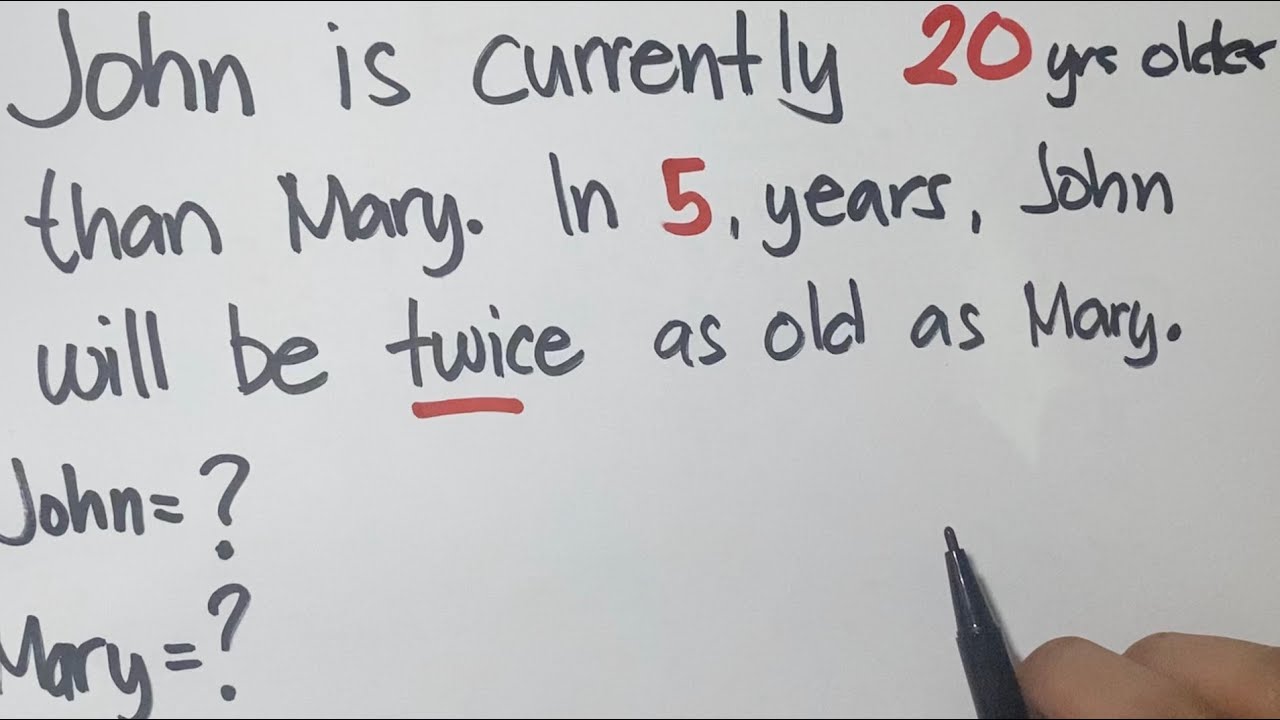 John is currently 20 yrs older
than Mary. In 5, years, John
will be twice as old as Mary.
John=?
Mary=?